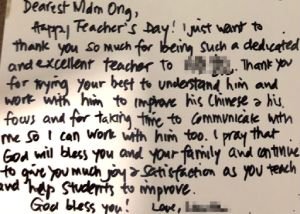 Dearest Mdm Ong,
Happy Teacher's Day! I just want to
thank you so much for being such a dedicated
and excellent teacher to
Thank you
for trying your best to understand him and
work with him to improve his Chinese & his
focus and for taking time to communicate with
me so I can work with him too. I pray that
God will bless you and your family and continue
to give you much joy & satisfaction as you teach
and help students to improve.
God bless you! Love,